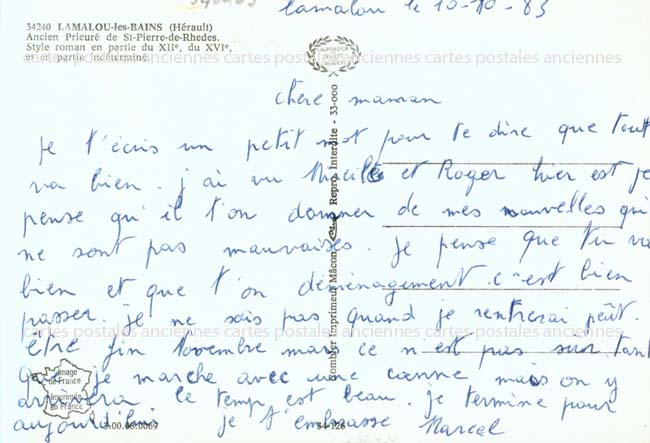 Lamalou le 10-10-83
34240 LAMALOU-les-BAINS (Hérault)
Ancien Prieuré de St-Pierre-de-Rhedes.
Style roman en partie du XIIe, du XVIe,
et en partie indéterminé.
chère maman
je t'écris un petit mot pour te dire que tout
va bien. j'ai vu et Roger hier est je
pense qu'il t'on donner de mes nouvelles qui
ne sont pas mauvaises. je pense que tu va
bien et que t'on déménagement c'est bien
passer. je ne sais pas quand je rentrerai peut.
être fin Novembre mais ce n'est pas sur tant
que je marche avec une canne mais on y
arrivera le temp est beau. je termine pour
aujourd'hui. je t'embrasse Marcel
Combier Imprimeur Mâcon Repro. Interdite - 33-000
cartes postales anciennes cartes postales anciennes cartes postales anciennes
cartes postales anciennes cartes postales anciennes cartes postales anciennes
cartes postales anciennes cartes postales anciennes cartes postales anciennes
Image
de France
Imprimée
en France